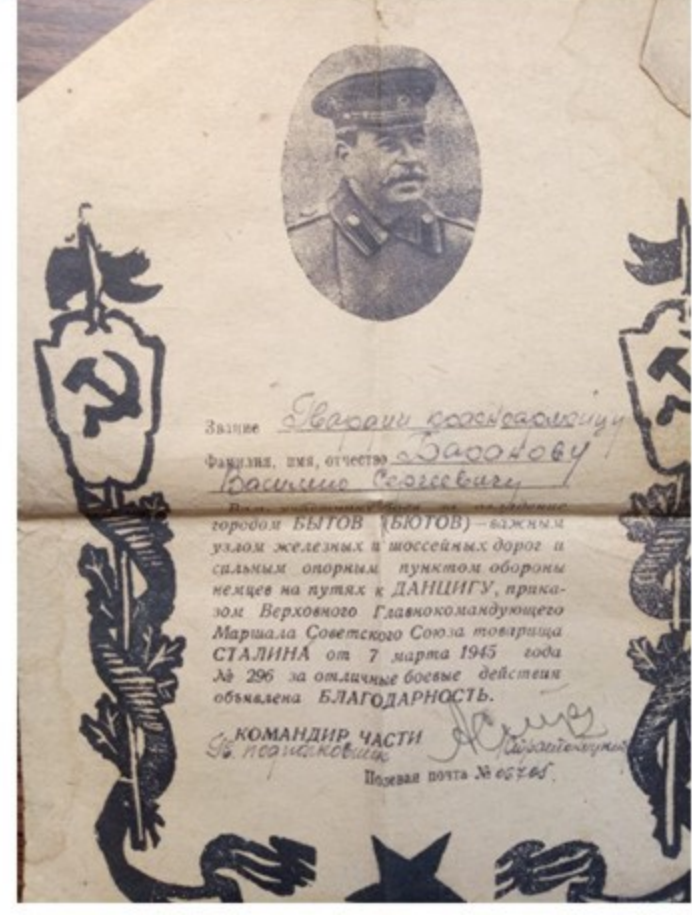 Звание Гвардии красноармейцу
Фамилия, имя, отчество Баранову
Василию Сергеевичу
городом БЫТОВ (БЮТОВ) — важным
узлом железных и шоссейных дорог и
сильным опорным пунктом обороны
немцев на путях к ДАНЦИГУ, прика-
зом Верховного Главнокомандующего
Маршала Советского Союза товарища
СТАЛИНА от 7 марта 1945 года
№ 296 за отличные боевые действия
объявлена БЛАГОДАРНОСТЬ.
КОМАНДИР ЧАСТИ
Гв. подполковник
Полевая почта № 06705.